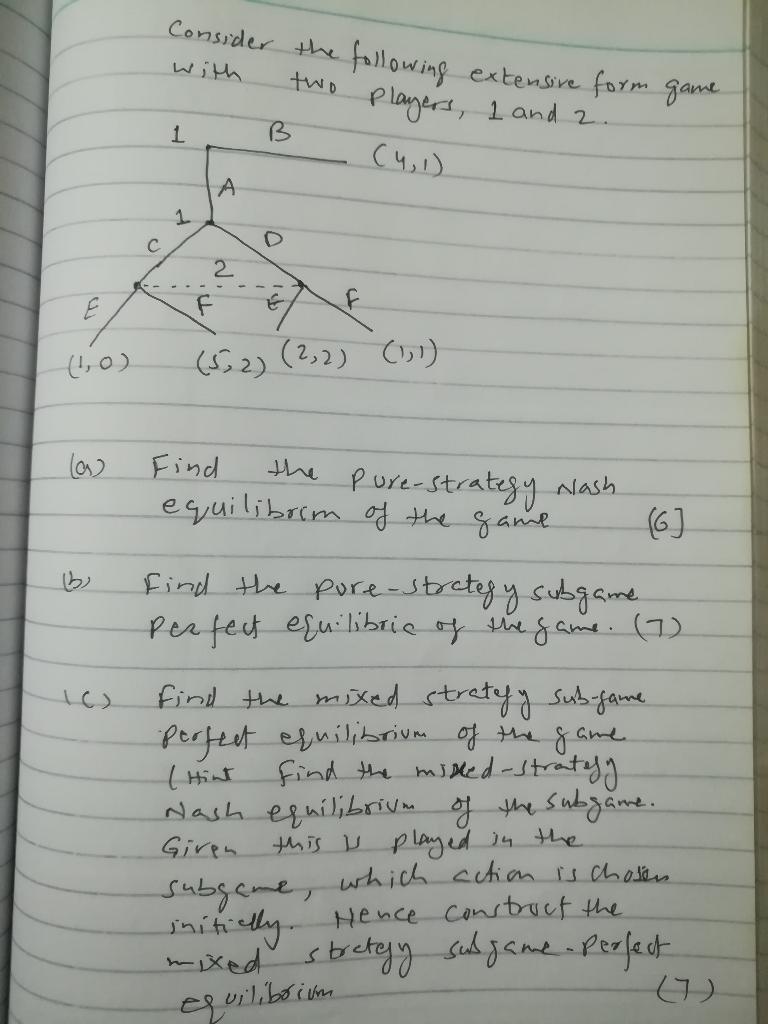 Consider the following extensive form game
with two players, 1 and 2.
1 B (4,1)
A
1
C D
2
E F E F
(1,0) (5,2) (2,2) (1,1)
(a) Find the pure-strategy Nash
equilibrism of the game [6]
(b) Find the pure-strategy subgame
perfect equilibria of the game. (7)
(c) find the mixed strategy sub-game
perfect equilibrium of the game
(Hint find the mixed-strategy
Nash equilibrium of the subgame.
Given this is played in the
subgame, which action is chosen
initially. Hence construct the
mixed strategy subgame-perfect
equilibrium (7)